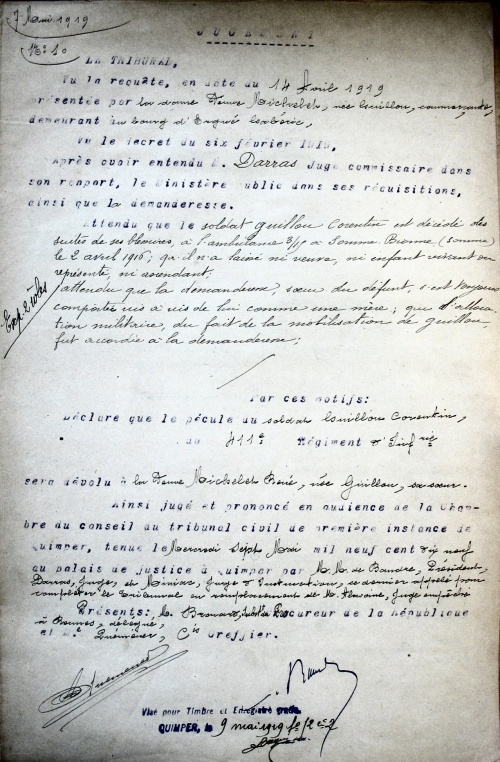 7 Mai 1919
No: 10
JUGEMENT
LE TRIBUNAL,
Vu la requête, en date du 14 Avril 1919
présentée par la dame Femme Michelet, née Guillou, commerçante,
demeurant au bourg d'Ergué Gabéric,
Vu le decret du six février 1919,
Après avoir entendu M. Darras Juge commissaire dans
son rapport, le Ministère Public dans ses réquisitions,
ainsi que la demanderesse.
Attendu que le soldat Guillou Corentin est décédé des
suites de ses blessures, à l'ambulance 3/15 à Somme Bionne (somme)
le 2 avril 1916; qu'il n'a laissé ni veuve, ni enfant vivant ou
représenté, ni ascendant.
attendu que la demanderesse, sœur du défunt, s'est toujours
comportée vis à vis de lui comme une mère; que l'alloca-
tion militaire, du fait de la mobilisation de Guillou,
fut accordée à la demanderesse;
Exp. 2 roles
Par ces motifs:
Déclare que le pécule du soldat Guillou Corentin,
du 411e Régiment d'Infrie
sera dévolu à la Femme Michelet René, née Guillou, sa sœur.
Ainsi jugé et prononcé en audience de la Cham-
bre du conseil du tribunal civil de première instance de
Quimper, tenue le Mercredi Sept Mai mil neuf cent dix neuf
au palais de justice à Quimper par M.M. de Président,
Darras, Juge, et Miniac, Juge d'Instruction, ce dernier appelé pour
compléter le Tribunal en remplacement de M. Juge empêché
Présents: M. Procureur de la République
à Rennes, délégué,
et Me Quéméner, Cis Greffier.
Visé pour Timbre et Enregistré gratis
QUIMPER, le 9 mai 1919